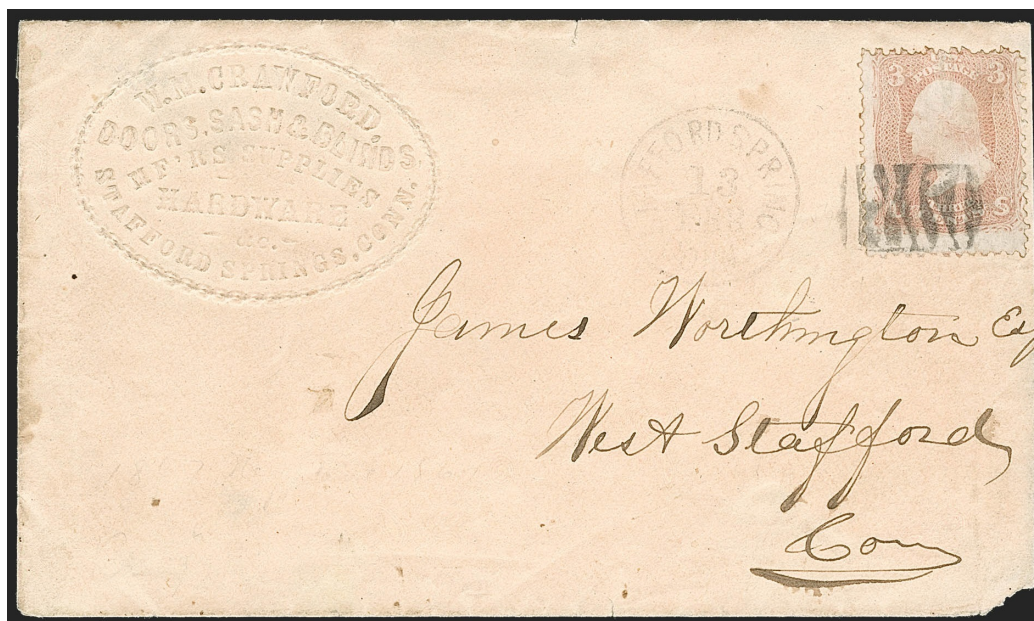 W.M. CRAWFORD,
DOORS, SASH & BLINDS,
MF'RS SUPPLIES
HARDWARE
&c.
STAFFORD SPRINGS, CONN.
FFORD SPRING
13
3 3
POSTAGE
James Worthington Esq
West Stafford
Con